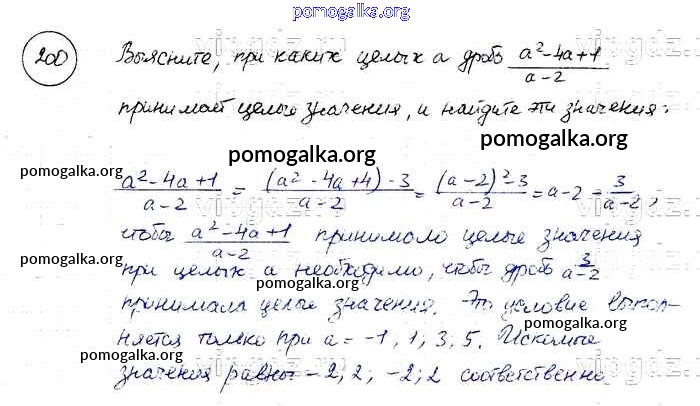 pomogalka.org
200 Выясните, при каких целых a дробь (a²-4a+1)/(a-2)
принимает целые значения, и найдите эти значения:
pomogalka.org
pomogalka.org
pomogalka.org
(a²-4a+1)/(a-2) = ((a²-4a+4)-3)/(a-2) = ((a-2)²-3)/(a-2) = a-2-3/(a-2),
чтобы (a²-4a+1)/(a-2) принимало целые значения
pomogalka.org
pomogalka.org
при целых a необходимо, чтобы дробь 3/(a-2)
pomogalka.org
принимала целые значения. Это условие выпол-
pomogalka.org
няется только при a = -1, 1; 3; 5. Искомые
pomogalka.org
значения равны -2, 2; -2; 2 соответственно